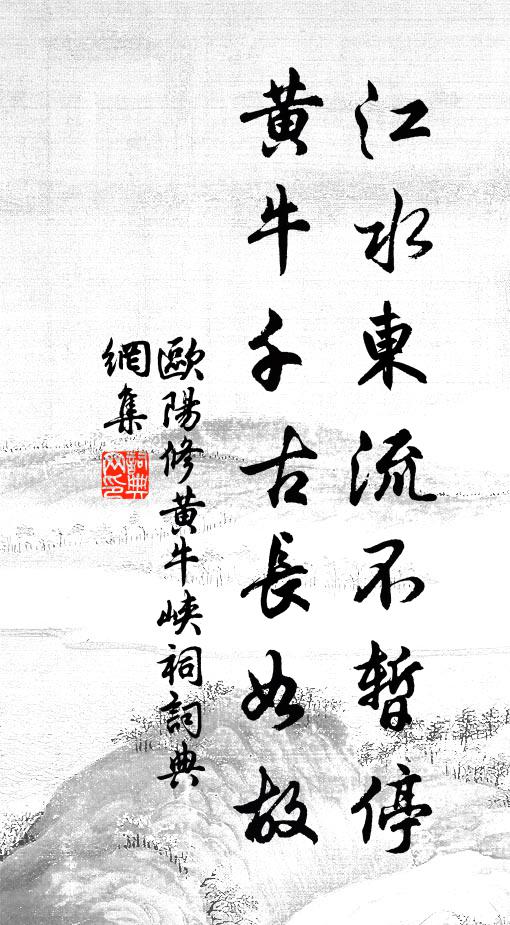 江水東流不暫停
黃牛千古長如故
歐陽修黃牛峽祠詞典
網集
詞典网印